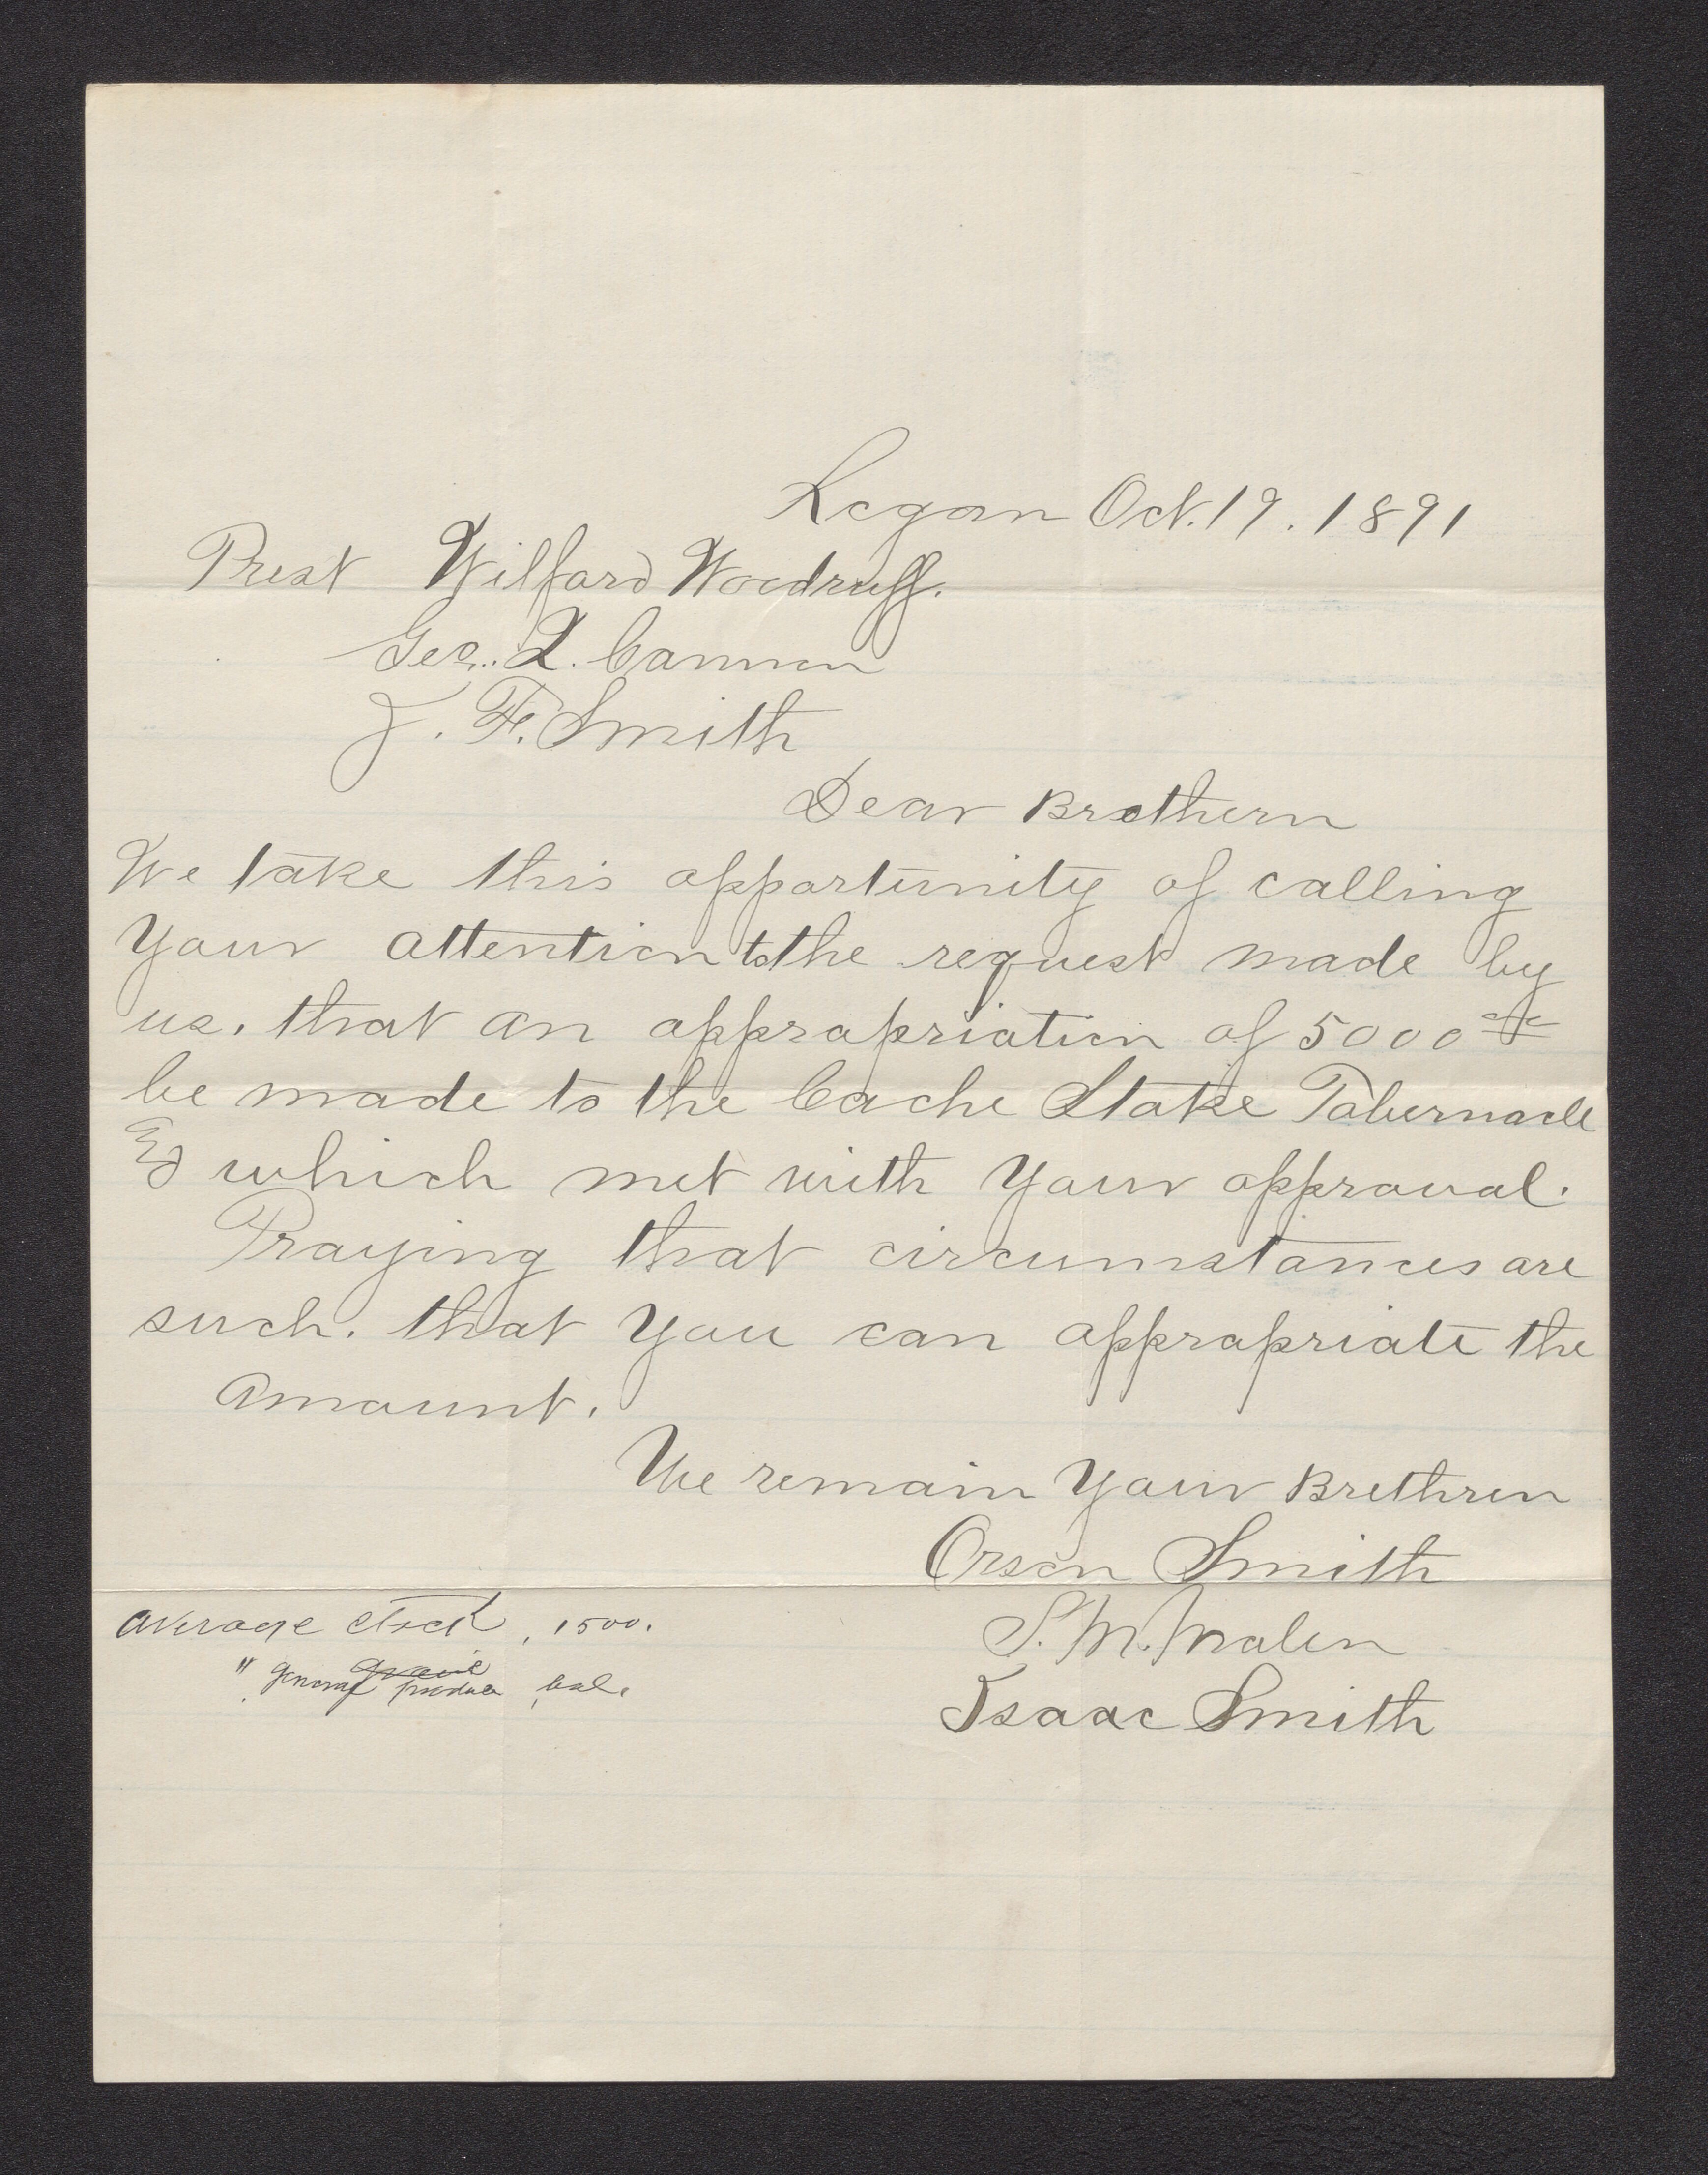 Logan Oct. 19. 1891
Prest Wilford Woodruff.
Geo. Q. Cannon
J. F. Smith
Dear Brothern
We take this opportunity of calling
Your attention to the request made by
us. that an appropriation of 5000
be made to the Cache Stake Tabernacle
which met with Your approval.
Praying that circumstances are
such. that You can appropriate the
Amount.
We remain Your Brethren
Orson Smith
S. M. Molen
Isaac Smith
average stock, 1500.
" general produce bal.